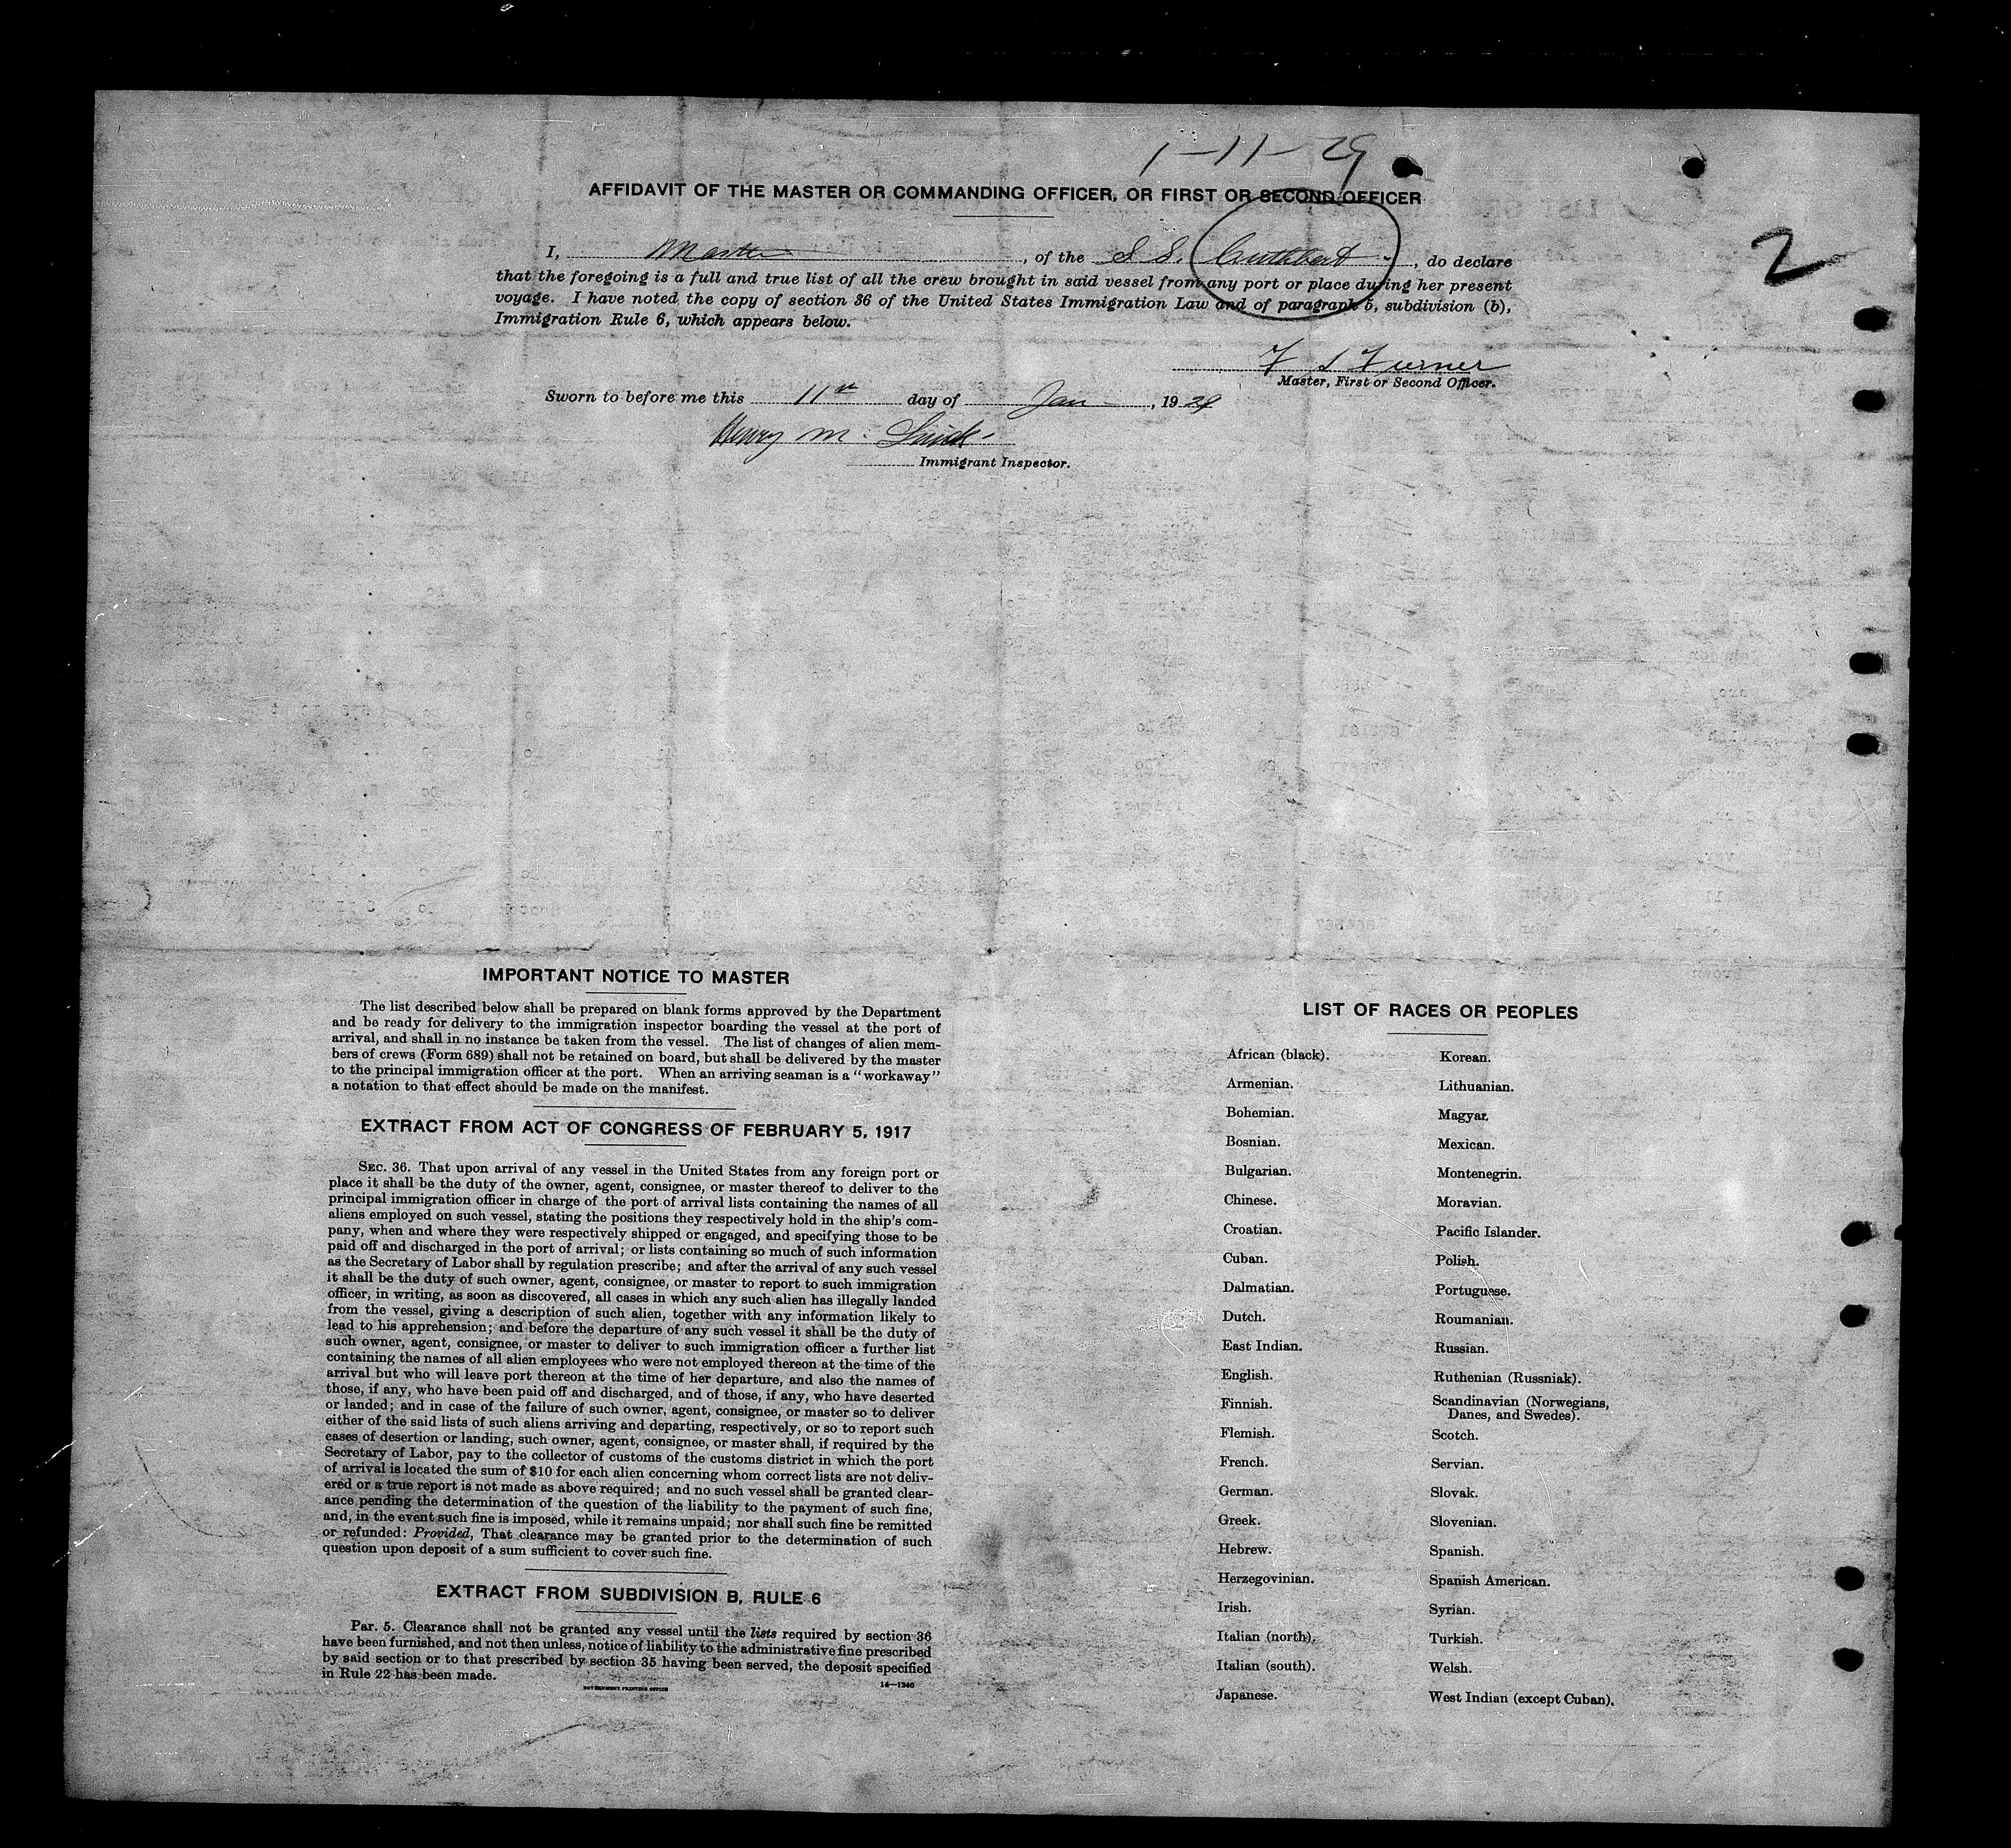 1-11-29
AFFIDAVIT OF THE MASTER OR COMMANDING OFFICER, OR FIRST OR SECOND OFFICER
2
I, Master, of the S.S. Cuthbert, do declare
that the foregoing is a full and true list of all the crew brought in said vessel from any port or place during her present
voyage. I have noted the copy of section 36 of the United States Immigration Law and of paragraph 5, subdivision (b),
Immigration Rule 6, which appears below.
Turner
Master, First or Second Officer.
Sworn to before me this 11th day of Jan, 1929
Henry M.
Immigrant Inspector.
IMPORTANT NOTICE TO MASTER
The list described below shall be prepared on blank forms approved by the Department
and be ready for delivery to the immigration inspector boarding the vessel at the port of
arrival, and shall in no instance be taken from the vessel. The list of changes of alien mem-
bers of crews (Form 689) shall not be retained on board, but shall be delivered by the master
to the principal immigration officer at the port. When an arriving seaman is a "workaway"
a notation to that effect should be made on the manifest.
EXTRACT FROM ACT OF CONGRESS OF FEBRUARY 5, 1917
SEC. 36. That upon arrival of any vessel in the United States from any foreign port or
place it shall be the duty of the owner, agent, consignee, or master thereof to deliver to the
principal immigration officer in charge of the port of arrival lists containing the names of all
aliens employed on such vessel, stating the positions they respectively hold in the ship's com-
pany, when and where they were respectively shipped or engaged, and specifying those to be
paid off and discharged in the port of arrival; or lists containing so much of such information
as the Secretary of Labor shall by regulation prescribe; and after the arrival of any such vessel
it shall be the duty of such owner, agent, consignee, or master to report to such immigration
officer, in writing, as soon as discovered, all cases in which any such alien has illegally landed
from the vessel, giving a description of such alien, together with any information likely to
lead to his apprehension; and before the departure of any such vessel it shall be the duty of
such owner, agent, consignee, or master to deliver to such immigration officer a further list
containing the names of all alien employees who were not employed thereon at the time of the
arrival but who will leave port thereon at the time of her departure, and also the names of
those, if any, who have been paid off and discharged, and of those, if any, who have deserted
or landed; and in case of the failure of such owner, agent, consignee, or master so to deliver
either of the said lists of such aliens arriving and departing, respectively, or so to report such
cases of desertion or landing, such owner, agent, consignee, or master shall, if required by the
Secretary of Labor, pay to the collector of customs of the customs district in which the port
of arrival is located the sum of $10 for each alien concerning whom correct lists are not deliv-
ered or a true report is not made as above required; and no such vessel shall be granted clear-
ance pending the determination of the question of the liability to the payment of such fine,
and, in the event such fine is imposed, while it remains unpaid; nor shall such fine be remitted
or refunded: Provided, That clearance may be granted prior to the determination of such
question upon deposit of a sum sufficient to cover such fine.
EXTRACT FROM SUBDIVISION B, RULE 6
Par. 5. Clearance shall not be granted any vessel until the lists required by section 36
have been furnished, and not then unless, notice of liability to the administrative fine prescribed
by said section or to that prescribed by section 35 having been served, the deposit specified
in Rule 22 has been made.
GOVERNMENT PRINTING OFFICE
14—1240
LIST OF RACES OR PEOPLES
African (black).
Armenian.
Bohemian.
Bosnian.
Bulgarian.
Chinese.
Croatian.
Cuban.
Dalmatian.
Dutch.
East Indian.
English.
Finnish.
Flemish.
French.
German.
Greek.
Hebrew.
Herzegovinian.
Irish.
Italian (north).
Italian (south).
Japanese.
Korean.
Lithuanian.
Magyar.
Mexican.
Montenegrin.
Moravian.
Pacific Islander.
Polish.
Portuguese.
Roumanian.
Russian.
Ruthenian (Russniak).
Scandinavian (Norwegians,
Danes, and Swedes).
Scotch.
Servian.
Slovak.
Slovenian.
Spanish.
Spanish American.
Syrian.
Turkish.
Welsh.
West Indian (except Cuban).